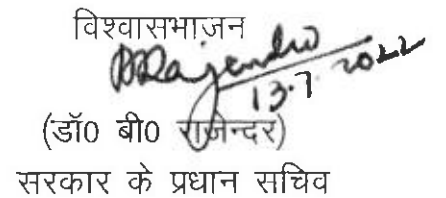 विश्वासभाजन
BRajendra
13.7 2022
(डॉ0 बी0 राजेन्दर)
सरकार के प्रधान सचिव